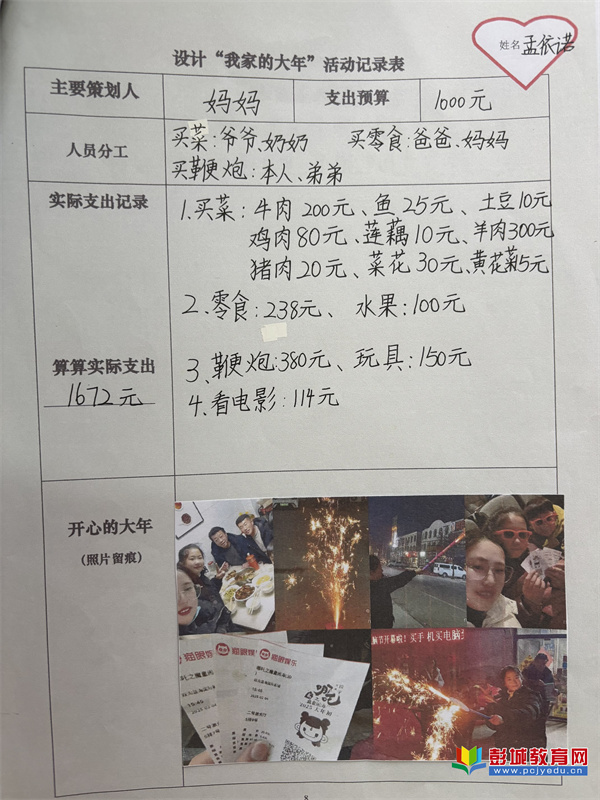 姓名 孟依诺
设计“我家的大年”活动记录表
主要策划人 妈妈 支出预算 1000元
人员分工
买菜:爷爷、奶奶 买零食:爸爸、妈妈
买鞭炮:本人、弟弟
实际支出记录
1.买菜:牛肉200元、鱼25元、土豆10元
鸡肉80元、莲藕10元、羊肉300元
猪肉20元、菜花30元、黄花菜15元
2、零食:238元、水果:100元
3、鞭炮:380元、玩具:150元
4.看电影:114元
算算实际支出
1672元
开心的大年
(照片留痕)
猫眼娱乐
2025大年初
开幕啦!买手机买电脑
彭城教育网
www.pcjyedu.cn
8